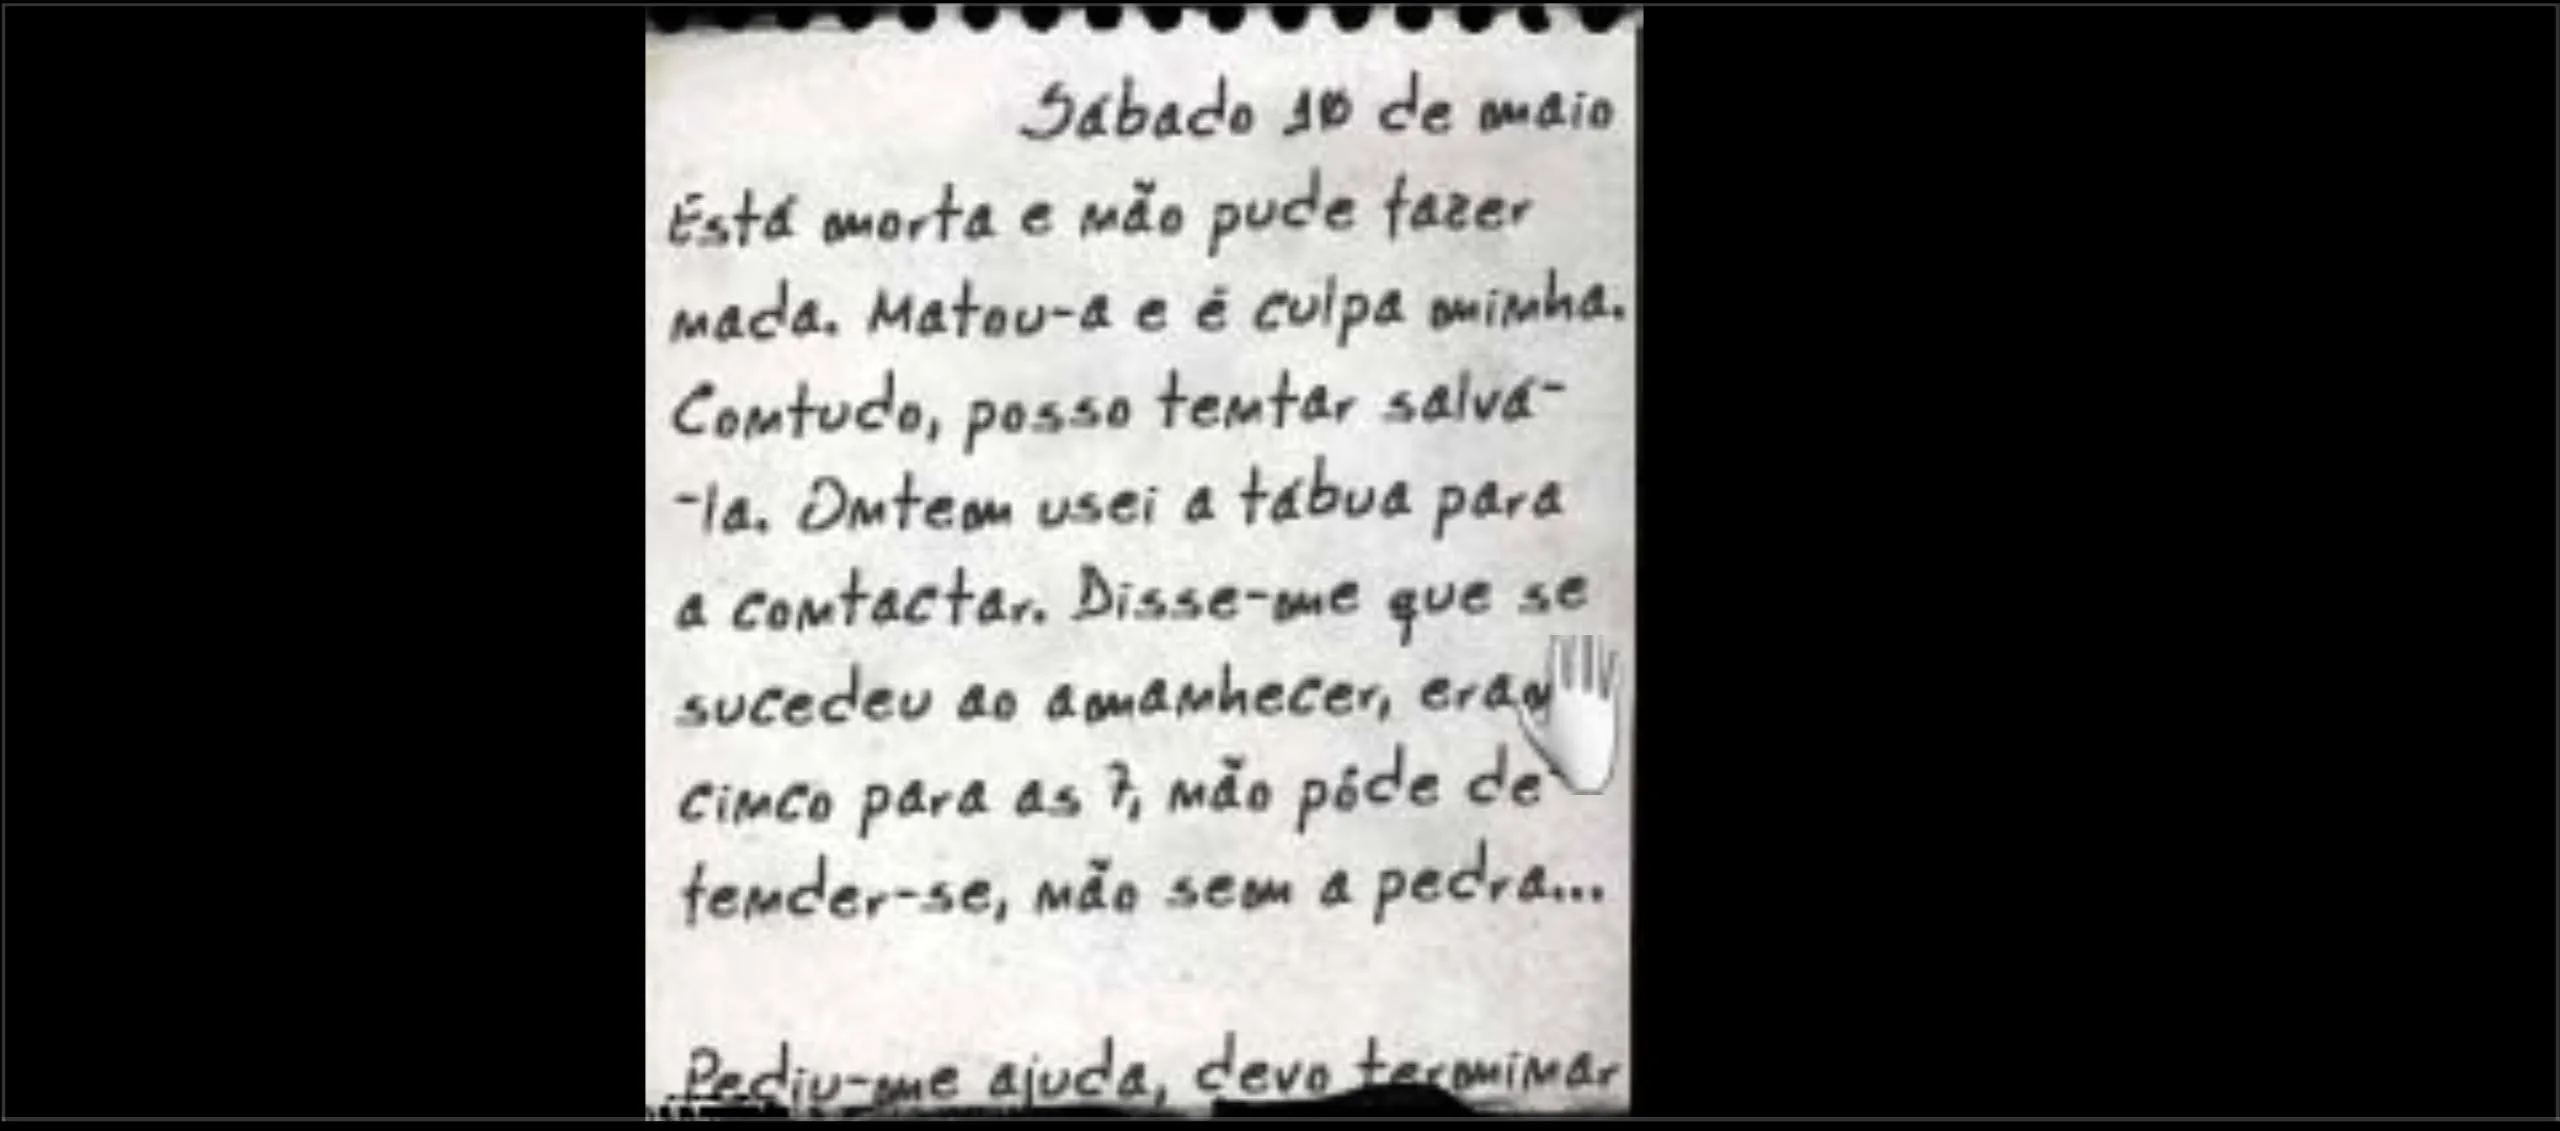 Sábado 10 de maio
Está morta e não pude fazer
nada. Matou-a e é culpa minha.
Contudo, posso tentar salvá-
-la. Ontem usei a tábua para
a contactar. Disse-me que se
sucedeu ao amanhecer, eram
cinco para as 7, não pôde de-
fender-se, não sem a pedra...
Pediu-me ajuda, devo terminar